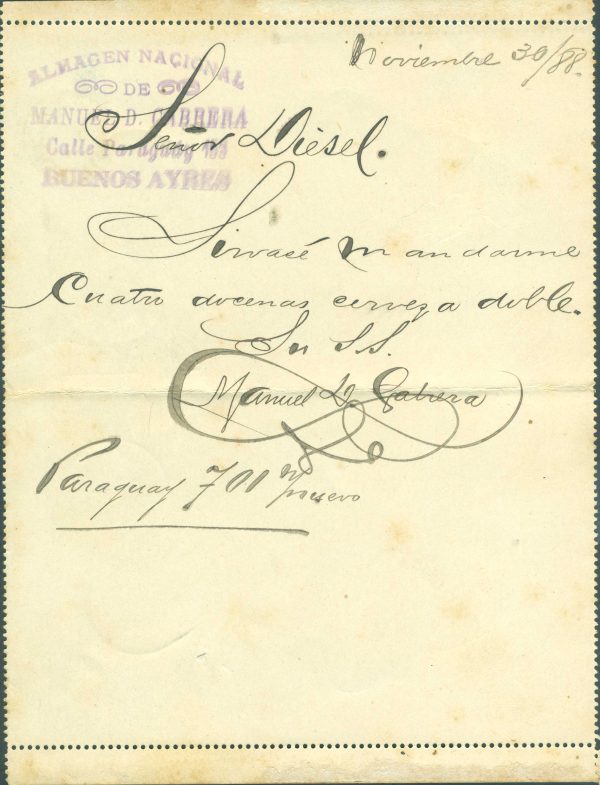 Noviembre 30/88.
ALMAGEN NACIONAL
DE
MANUEL D. CABRERA
Calle Paraguay
BUENOS AYRES
Señor Diesel.
Sirvasé mandarme
Cuatro docenas cerveza doble.
Su S.S.
Manuel D. Cabrera
Paraguay 700 nº nuevo